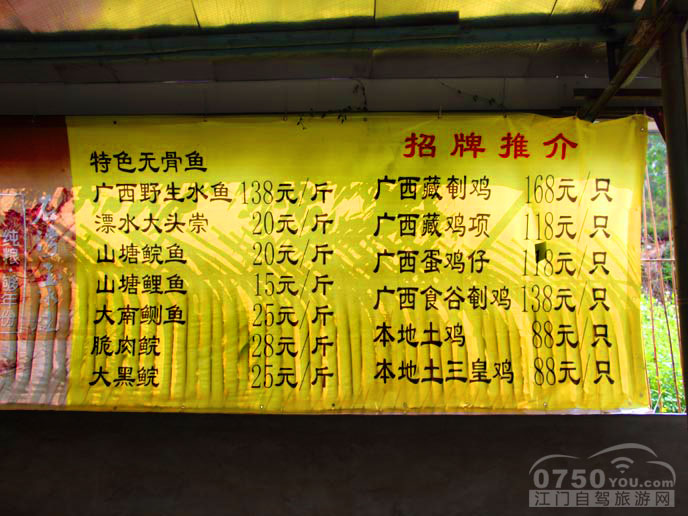 招牌推介
特色无骨鱼
广西野生水鱼 138元/斤
漂水大头崇 20元/斤
山塘鲩鱼 20元/斤
山塘鲤鱼 15元/斤
大南鲗鱼 25元/斤
脆肉鲩 28元/斤
大黑鲩 25元/斤
广西藏刽鸡 168元/只
广西藏鸡项 118元/只
广西蛋鸡仔 118元/只
广西食谷刽鸡 138元/只
本地土鸡 88元/只
本地土三皇鸡 88元/只
纯粮 够年份
0750YOU.com
江门自驾旅游网